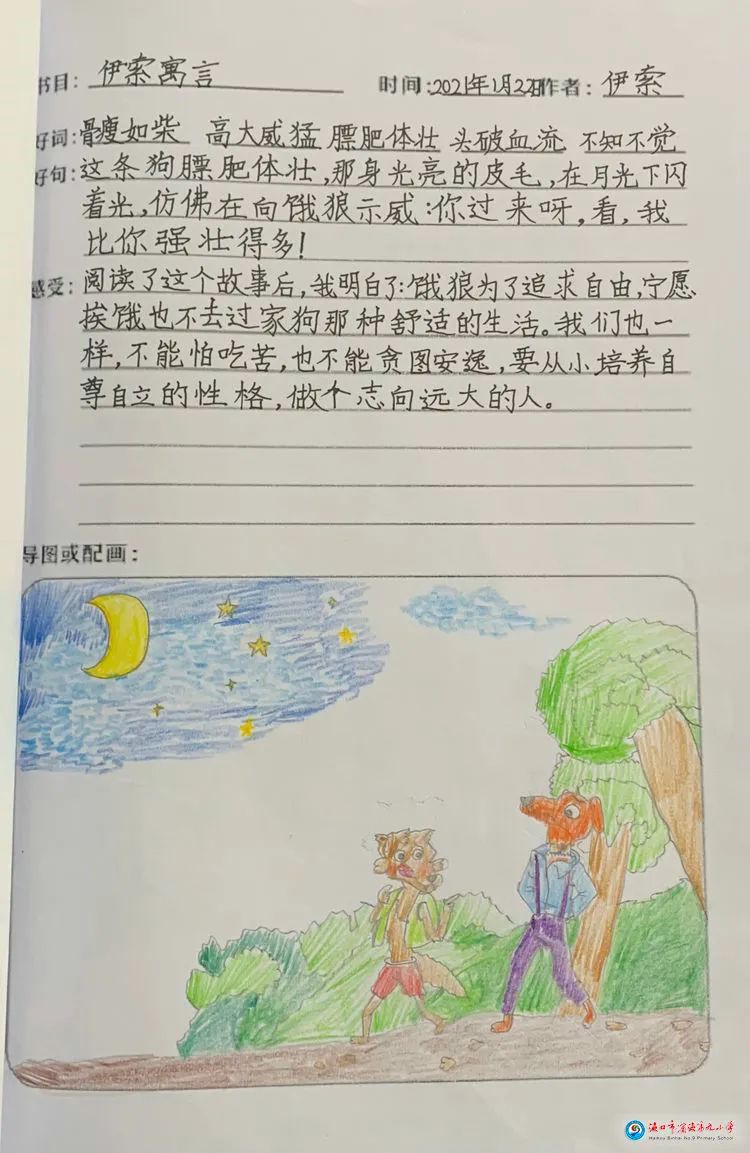 书目：伊索寓言 时间：2021年1月22日 作者：伊索
好词：骨瘦如柴 高大威猛 膘肥体壮 头破血流 不知不觉
好句：这条狗膘肥体壮，那身光亮的皮毛，在月光下闪
着光，仿佛在向饿狼示威：你过来呀，看，我
比你强壮得多！
感受：阅读了这个故事后，我明白了：饿狼为了追求自由，宁愿
挨饿也不去过家狗那种舒适的生活。我们也一
样，不能怕吃苦，也不能贪图安逸，要从小培养自
尊自立的性格，做个志向远大的人。
导图或配画：
海口市滨海第九小学
Haikou Binhai No.9 Primary School